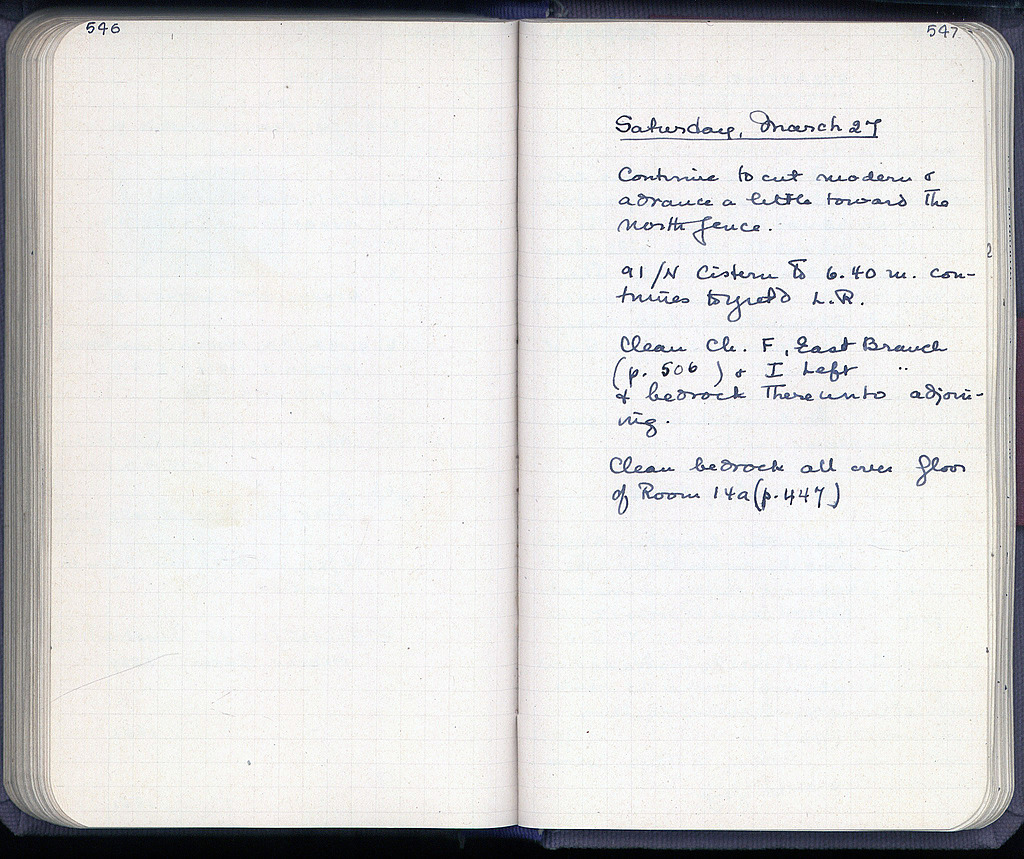 546
547
Saturday, March 27
Continue to cut modern &
advance a little toward the
north fence.
91/N Cistern to 6.40 m. con-
tinues to yield L.R.
Clean Ch. F, East Branch
(p. 506) & I Left "
& bedrock thereunto adjoin-
ing.
Clean bedrock all over floor
of Room 14a (p. 447)